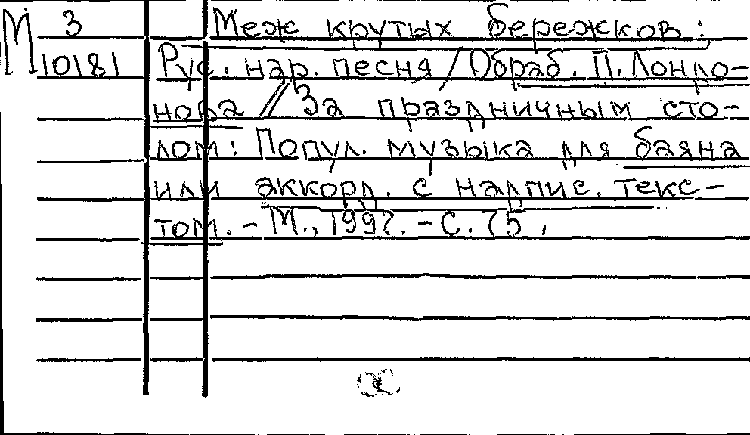 М 3 Меж крутых бережков:
10181 Рус. нар. песня / Обраб. П. Лондо-
нова // За праздничным сто-
лом: Попул. музыка для баяна
или аккорд. с надпис. текс-
том. - М., 1992. - С. 75.